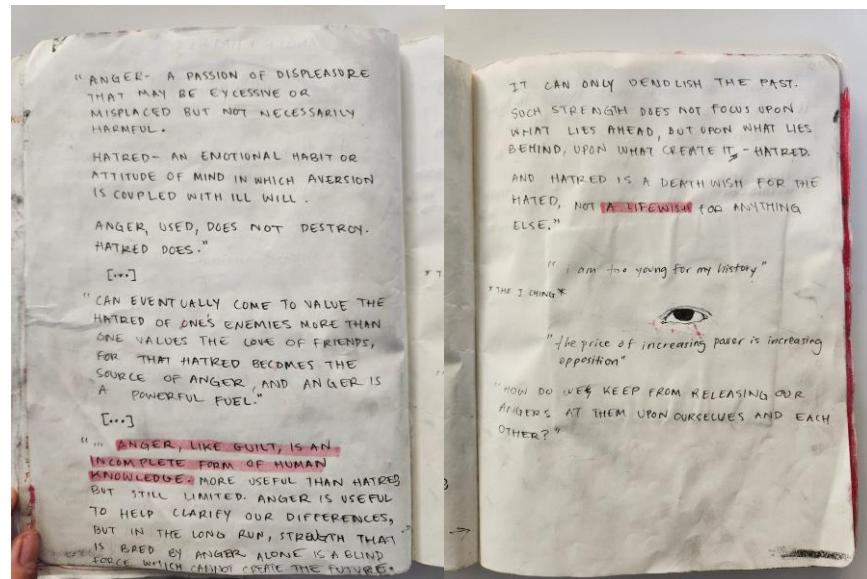 "ANGER- A PASSION OF DISPLEASURE
THAT MAY BE EXCESSIVE OR
MISPLACED BUT NOT NECESSARILY
HARMFUL.
HATRED- AN EMOTIONAL HABIT OR
ATTITUDE OF MIND IN WHICH AVERSION
IS COUPLED WITH ILL WILL.
ANGER, USED, DOES NOT DESTROY.
HATRED DOES."
[...]
"CAN EVENTUALLY COME TO VALUE THE
HATRED OF ONE'S ENEMIES MORE THAN
ONE VALUES THE LOVE OF FRIENDS,
FOR THAT HATRED BECOMES THE
SOURCE OF ANGER, AND ANGER IS
A POWERFUL FUEL."
[...]
"... ANGER, LIKE GUILT, IS AN
INCOMPLETE FORM OF HUMAN
KNOWLEDGE. MORE USEFUL THAN HATRED,
BUT STILL LIMITED. ANGER IS USEFUL
TO HELP CLARIFY OUR DIFFERENCES,
BUT IN THE LONG RUN, STRENGTH THAT
IS BRED BY ANGER ALONE IS A BLIND
FORCE WHICH CANNOT CREATE THE FUTURE.
IT CAN ONLY DEMOLISH THE PAST.
SUCH STRENGTH DOES NOT FOCUS UPON
WHAT LIES AHEAD, BUT UPON WHAT LIES
BEHIND, UPON WHAT CREATE IT, - HATRED.
AND HATRED IS A DEATH WISH FOR THE
HATED, NOT A LIFEWISH FOR ANYTHING
ELSE."
"i am too young for my history"
*THE I CHING*
"the price of increasing power is increasing
opposition"
"HOW DO WE KEEP FROM RELEASING OUR
ANGERS AT THEM UPON OURSELVES AND EACH
OTHER?"